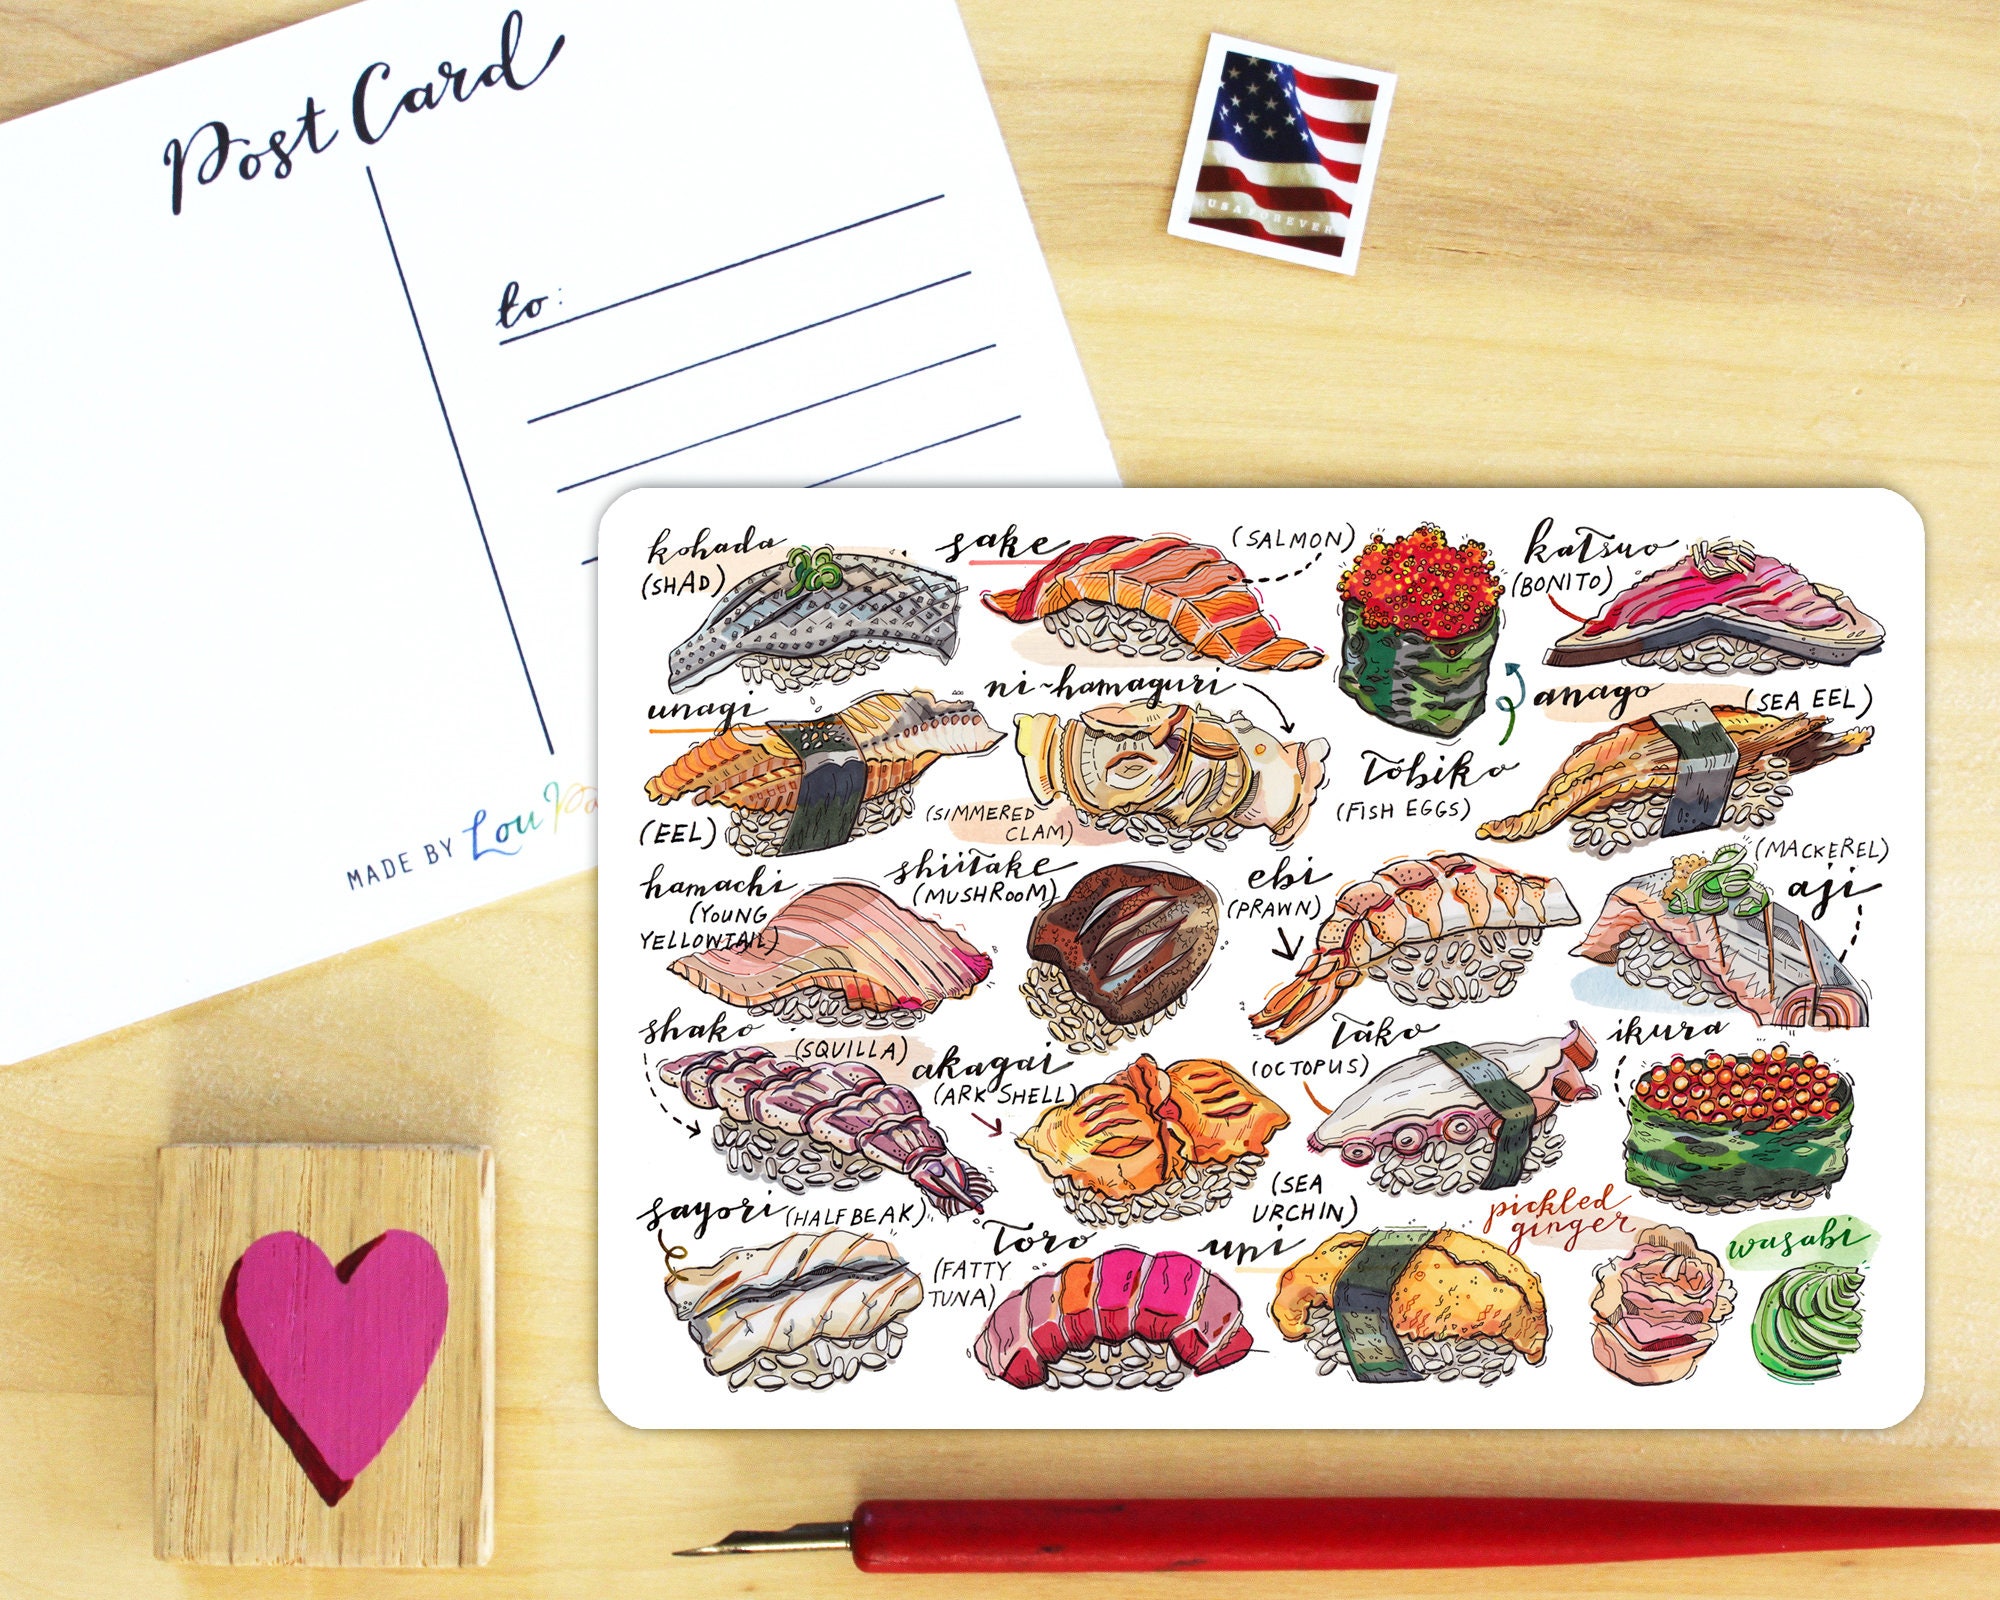 Post Card
to:
MADE BY Lou
USA FOREVER
kohada
(SHAD)
sake
(SALMON)
katsuo
(BONITO)
unagi
(EEL)
ni-hamaguri
(SIMMERED
CLAM)
Tobiko
(FISH EGGS)
anago
(SEA EEL)
hamachi
(YOUNG
YELLOWTAIL)
shiitake
(MUSHROOM)
ebi
(PRAWN)
(MACKEREL)
aji
shako
(SQUILLA)
akagai
(ARK SHELL)
Tako
(OCTOPUS)
ikura
sayori (HALFBEAK)
Toro
(FATTY
TUNA)
(SEA
URCHIN)
uni
pickled
ginger
wasabi